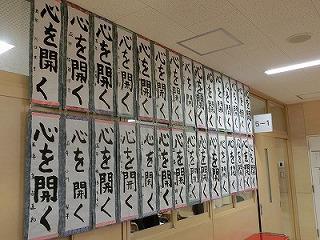 心を開く
心を開く
心を開く
心を開く
心を開く
心を開く
心を開く
心を開く
心を開く
心を開く
心を開く
心を開く
心を開く
心を開く
5-1
心を開く
心を開く
心を開く
心を開く
心を開く
心を開く
心を開く
心を開く
心を開く
心を開く
心を開く
心を開く
心を開く